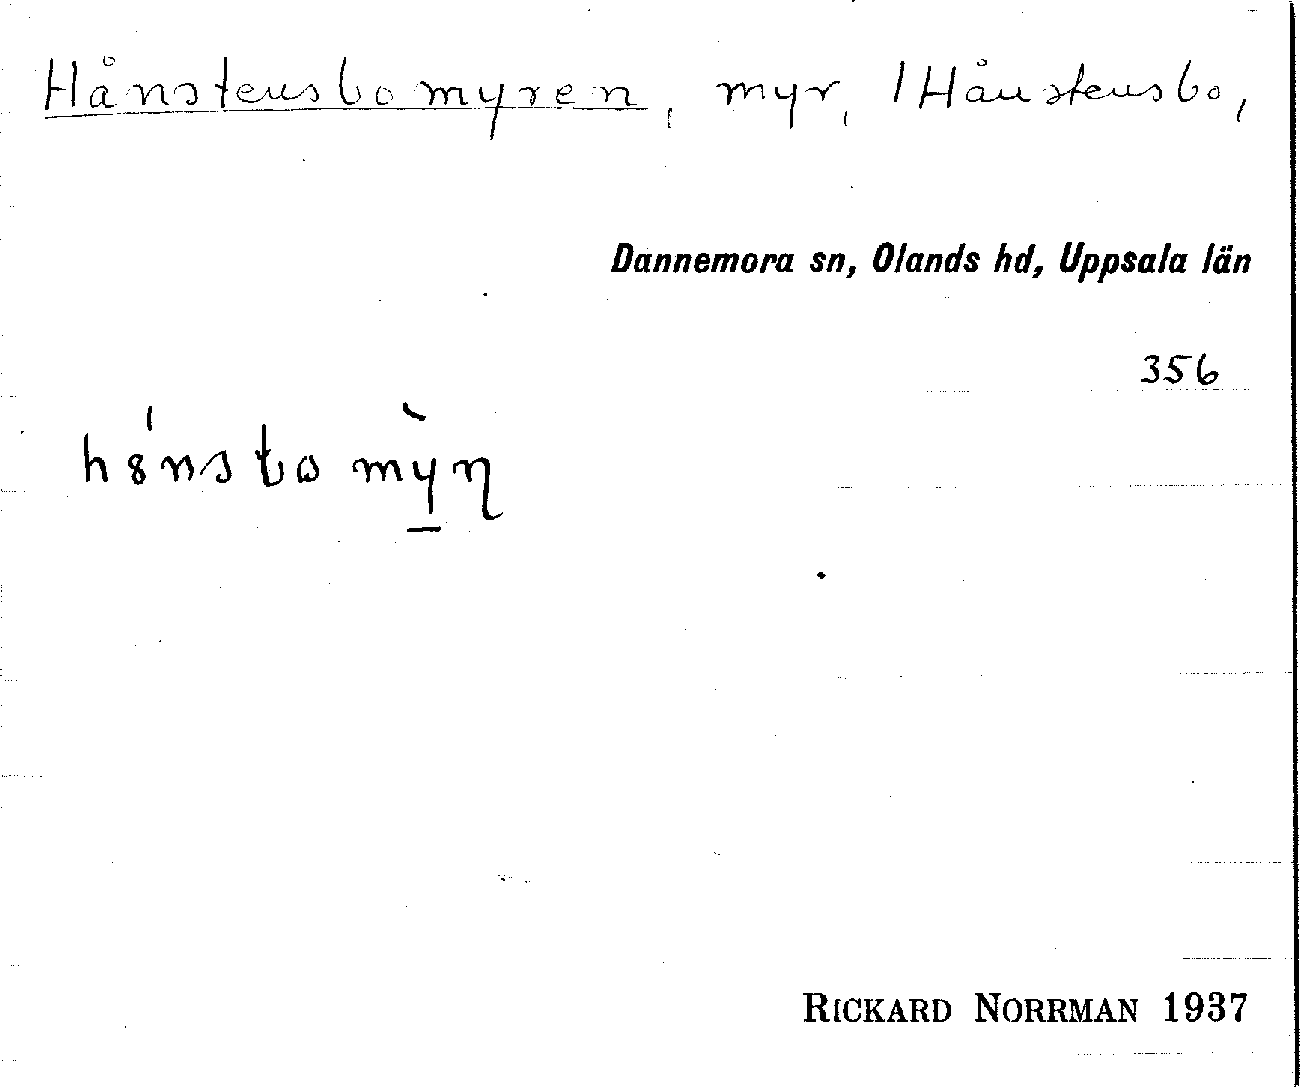 Hånstensbomyren, myr, / Hånstensbo,
Dannemora sn, Olands hd, Uppsala län
356
RICKARD NORRMAN 1937